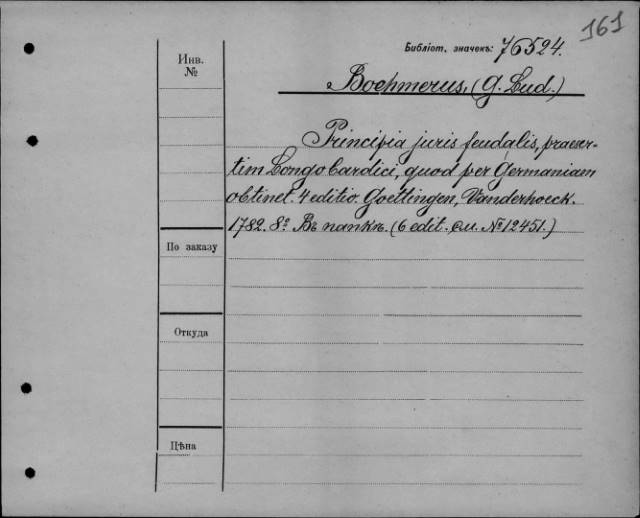 161
Библіот. значекъ: 76524.
Инв.
№
Boehmerus, (G. Lud.)
Principia juris feudalis, praeser-
tim Longobardici, quod per Germaniam
obtinet. 4 editio. Goettingen, Vanderhoeck.
1782. 8º. Въ папкѣ. (6 edit. см. № 12451.)
По заказу
Откуда
Цѣна